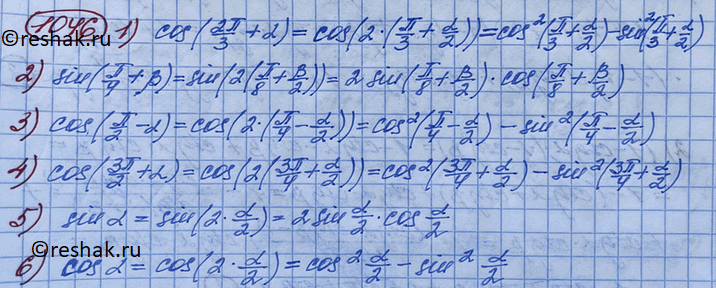 1046 1) cos(2π/3 + α) = cos(2·(π/3 + α/2)) = cos²(π/3 + α/2) - sin²(π/3 + α/2)
2) sin(π/4 + β) = sin(2(π/8 + β/2)) = 2 sin(π/8 + β/2)·cos(π/8 + β/2)
3) cos(π/2 - α) = cos(2·(π/4 - α/2)) = cos²(π/4 - α/2) - sin²(π/4 - α/2)
4) cos(3π/2 + α) = cos(2(3π/4 + α/2)) = cos²(3π/4 + α/2) - sin²(3π/4 + α/2)
5) sin α = sin(2·α/2) = 2 sin α/2 · cos α/2
6) cos α = cos(2·α/2) = cos² α/2 - sin² α/2
©reshak.ru
©reshak.ru